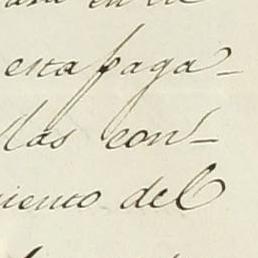 en el
esta paga-
las con-
iento del